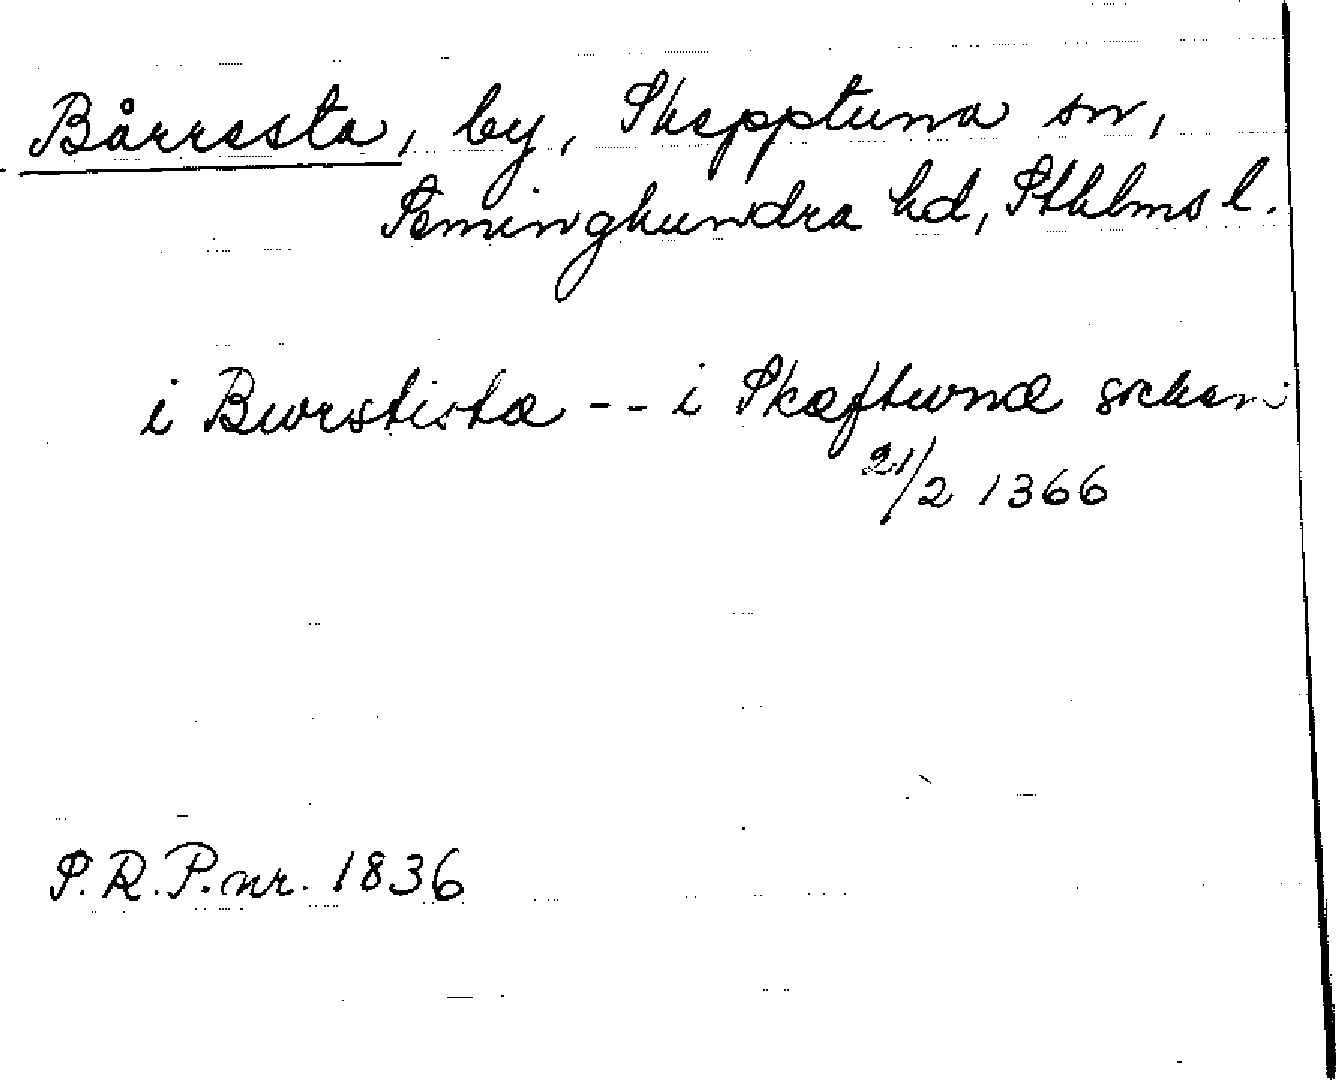 Bårresta, by, Skepptuna sn,
Seminghundra hd, Sthlms l.
i Burstista -- i Skæftunæ sokn
21/2 1366
S.R.P. nr. 1836